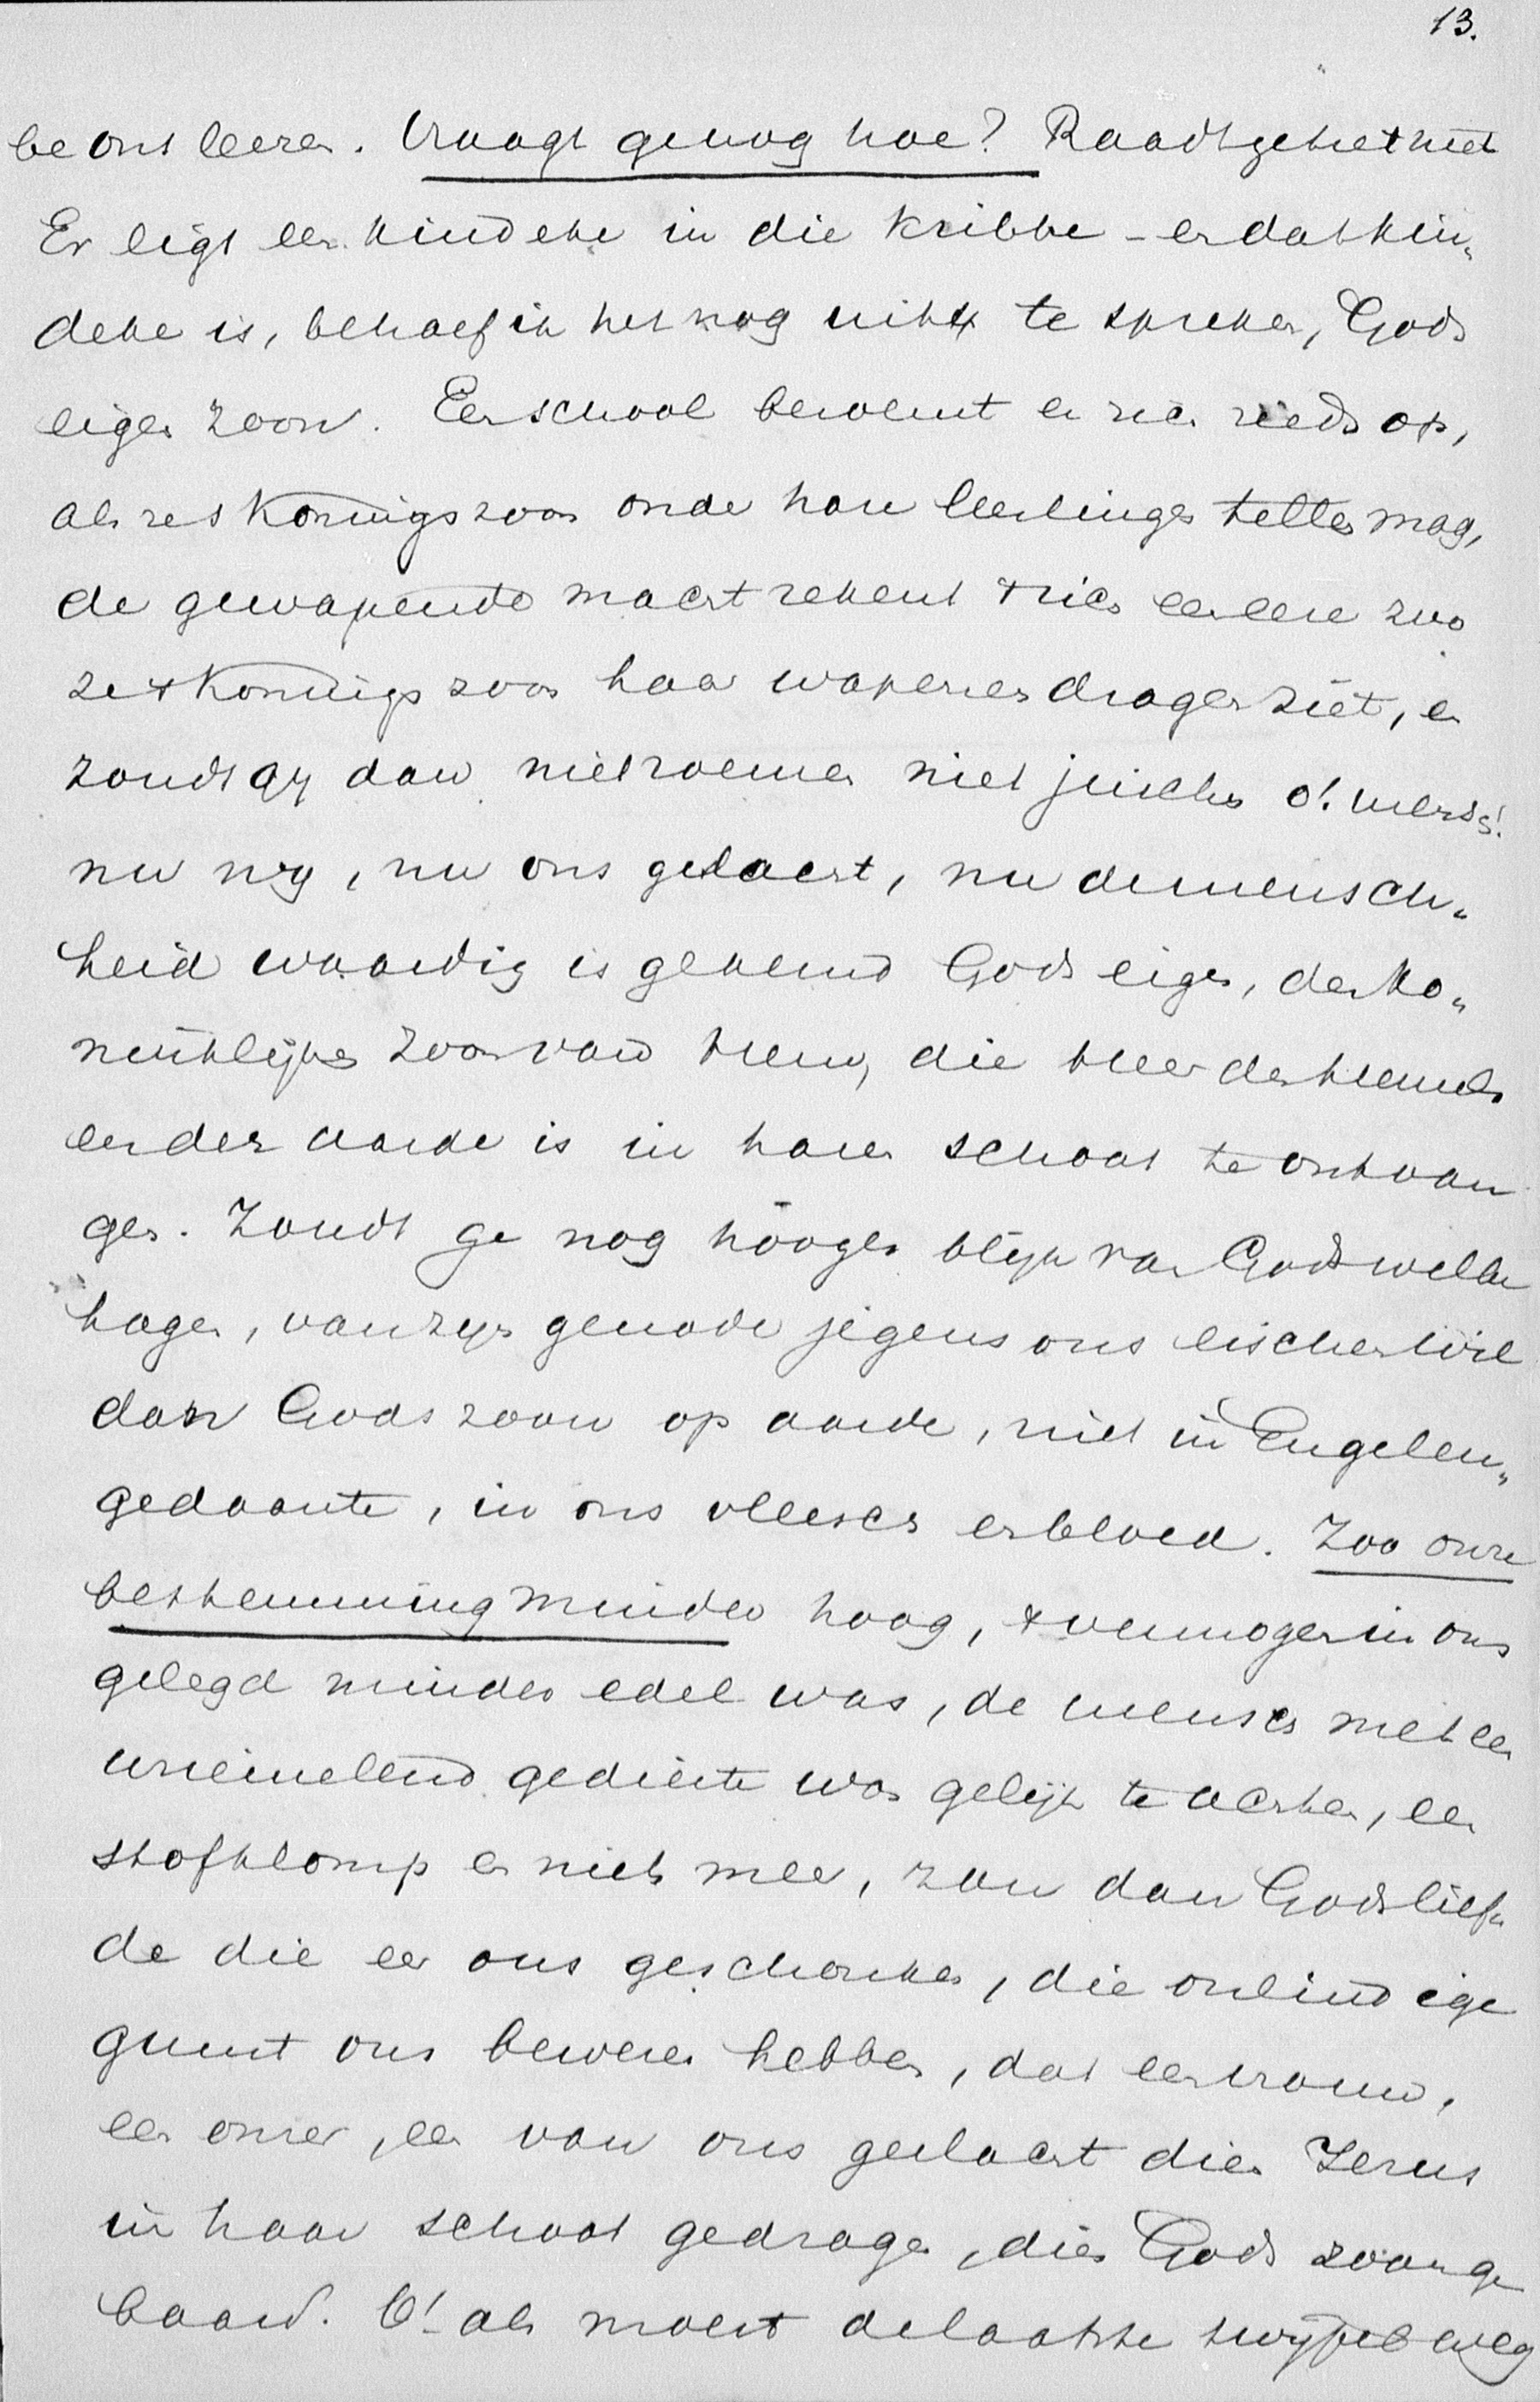 13.
be ons leeren. Vraagt ge nog hoe? Raadt ge het niet
Er ligt een kindeke in die kribbe – en dat kin„
deke is, behoef ik het nog uit te spreken, Gods
eigen zoon. Een school beroemt er zich reeds op,
als ze 's Konings zoon onder hare leerlingen tellen mag,
de gewapende macht rekent 't zich een eere zoo
ze 's Konings zoon haar wapenen dragen ziet, en
zoudt gij dan niet roemen niet juichen o! mensch!
nu wij, nu ons geslacht, nu de mensch„
heid waardig is gekend Gods eigen, den ko„
ninklijken zoon van hem, die heer des hemels
en der aarde is in haren schoot te ontvan
gen. Zoudt ge nog hooger blijk van Gods welbe
hagen, van zijn genade jegens ons eischen wil
dan Gods zoon op aarde, niet in Engelen„
gedaante, in ons vleesch en bloed. Zoo onze
bestemming minder hoog, 't vermogen in ons
gelegd minder edel was, de mensch met een
wriemelend gedierte was gelijk te achten, een
stofklomp en niets meer, zou dan Gods lief„
de die eer ons geschonken, die oneindige
gunst ons bewezen hebben, dat een vrouw,
een onzer, een van ons geslacht dien Jezus
in haar schoot gedragen, dien Gods zoon ge
baard. O! als moest de laatste twijfel weg